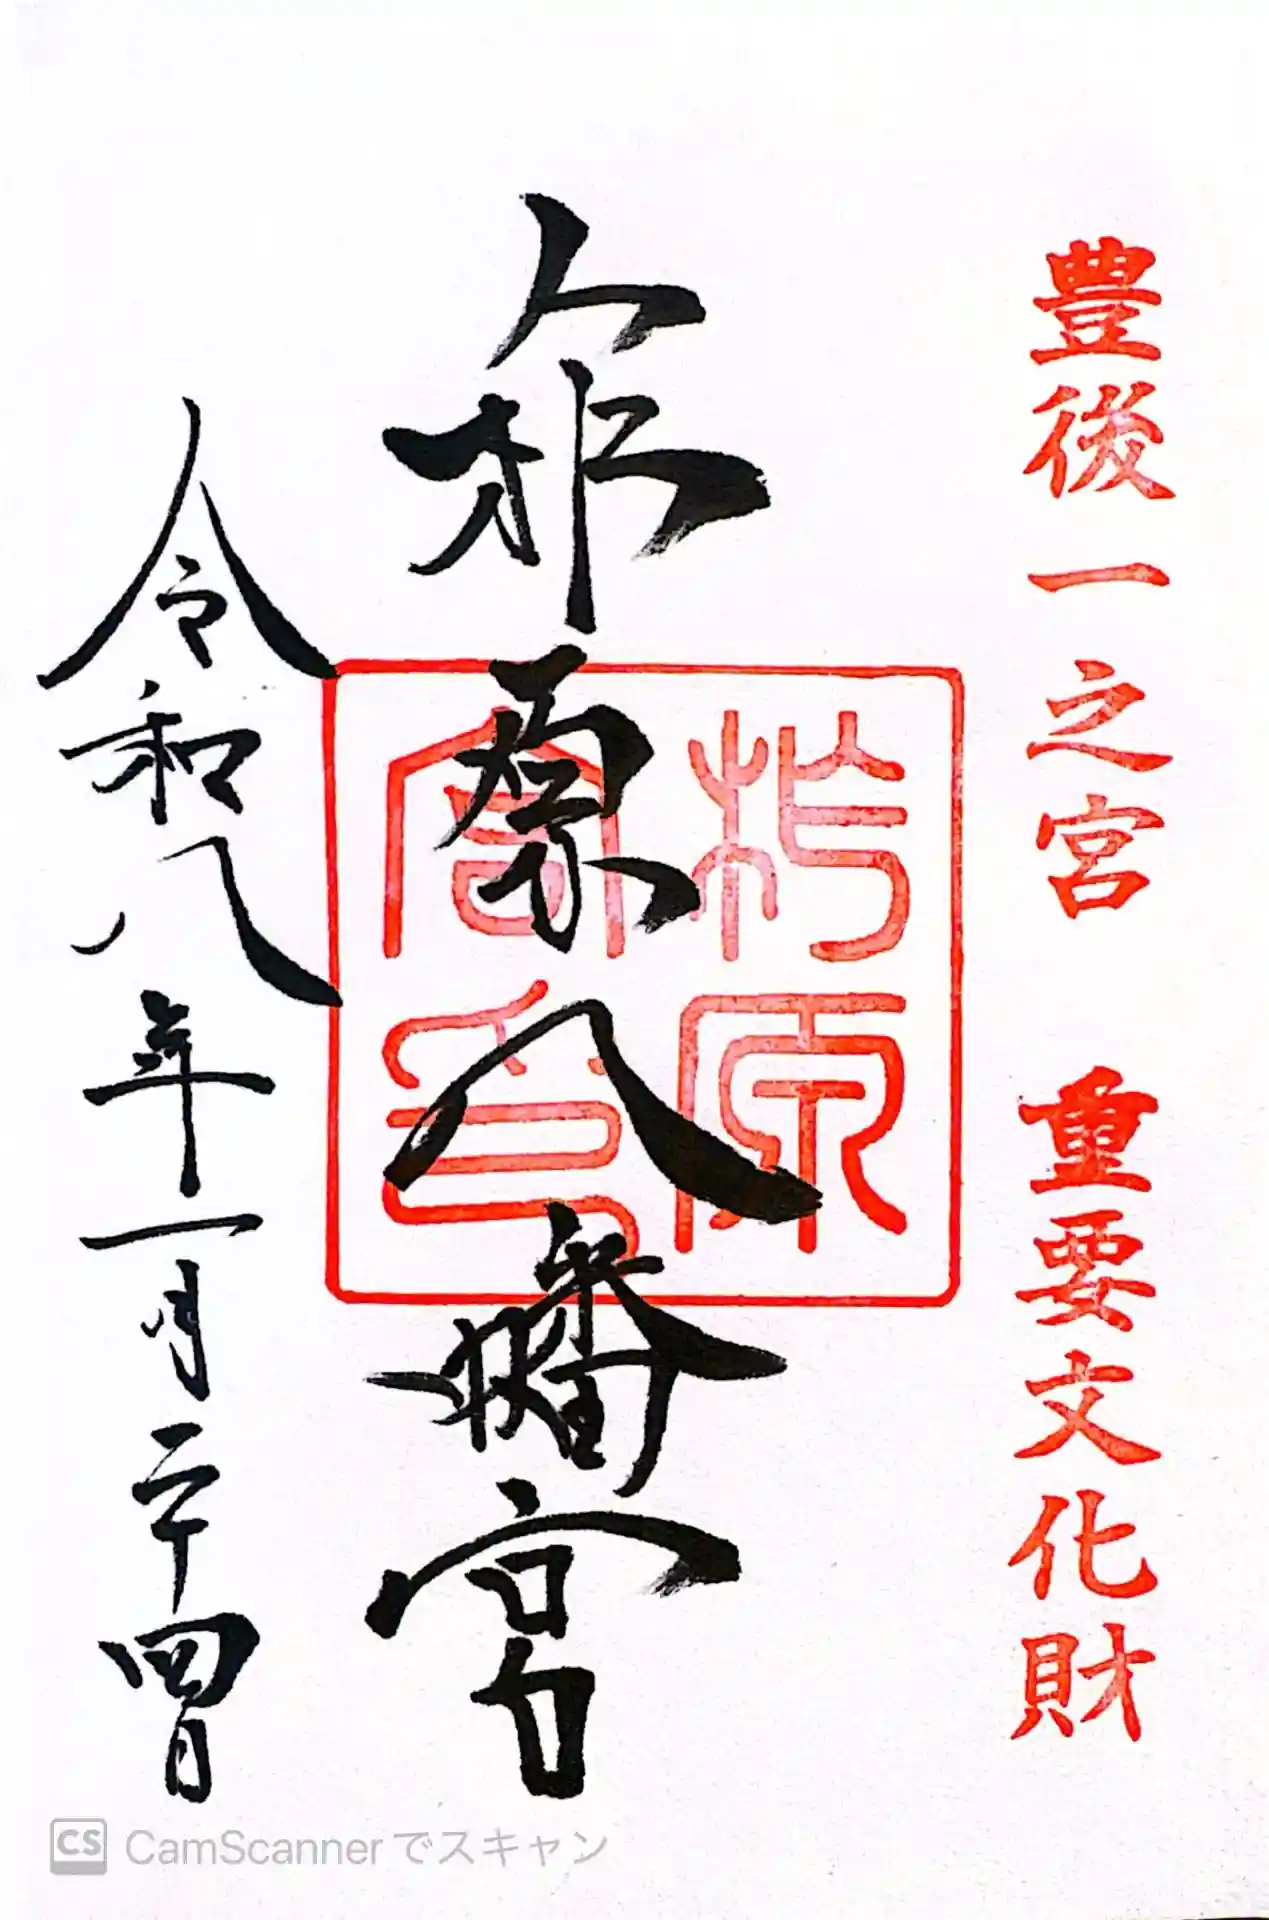 豊後一之宮　重要文化財
柞原八幡宮
柞原宮印
令和八年一月二十四日
CS CamScannerでスキャン